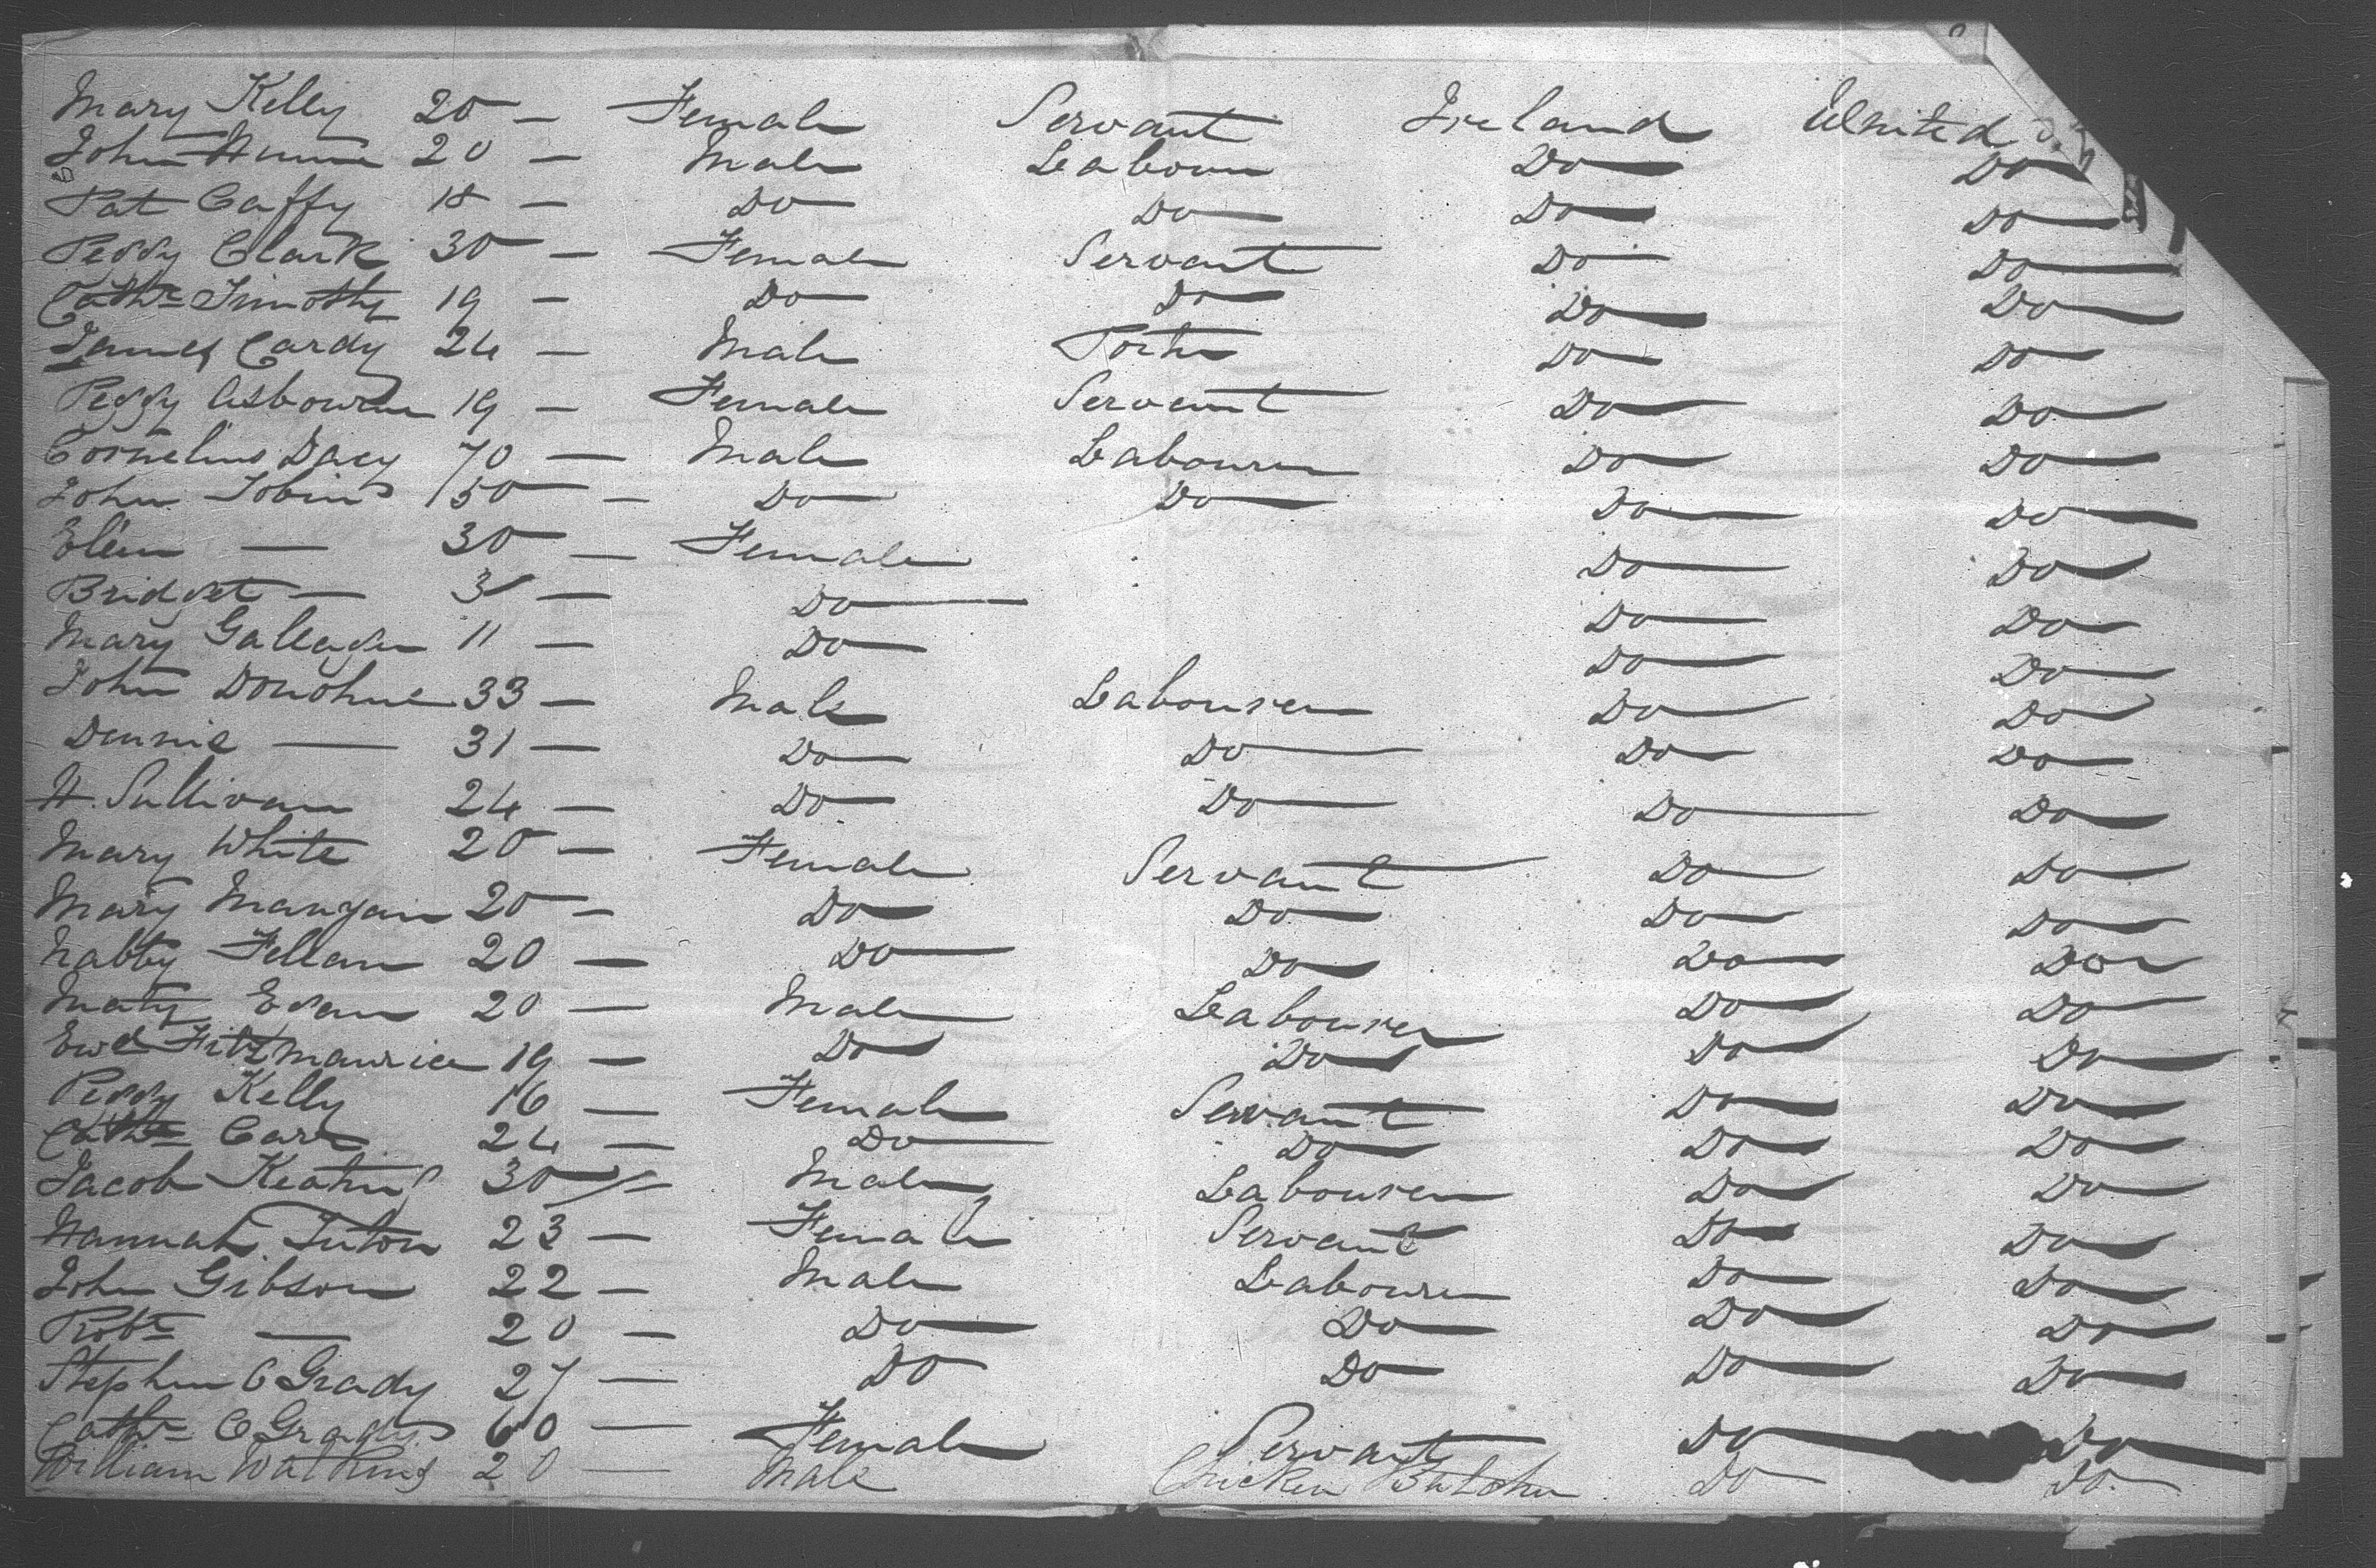 Mary Kelly 20 — Female Servant Ireland United
John 20 — Male Labour Do Do
Pat Caffy 18 — Do Do Do Do
Peggy Clark 30 — Female Servant Do Do
Cathe Timothy 19 — Do Do Do Do
James Cardy 24 — Male Porter Do Do
Peggy Osbourne 19 — Female Servant Do Do
Cornelius Dacy 70 — Male Labourer Do Do
John Tobin 50 — Do Do Do Do
Elein — 30 — Female Do Do
Bridget — 3 — Do Do Do
Mary Gallager 11 — Do Do Do
John Donohue 33 — Male Labourer Do Do
Dennis — 31 — Do Do Do Do
H. Sullivan 24 — Do Do Do Do
Mary White 20 — Female Servant Do Do
Mary Mangan 20 — Do Do Do Do
Nabby Fellan 20 — Do Do Do Do
Maty Egan 20 — Male Labourer Do Do
Ewd Fitzmaurice 19 — Do Do Do Do
Peggy Kelly 16 — Female Servant Do Do
Cathe Carr 24 — Do Do Do Do
Jacob Keating 30 — Male Labourer Do Do
Hannah Tuton 23 — Female Servant Do Do
John Gibson 22 — Male Labourer Do Do
Robt — 20 — Do Do Do Do
Stephen O Grady 27 — Do Do Do Do
Cathe O Grady 60 — Female Servant Do Do
William Watkins 20 — Male Chicken Butcher Do Do